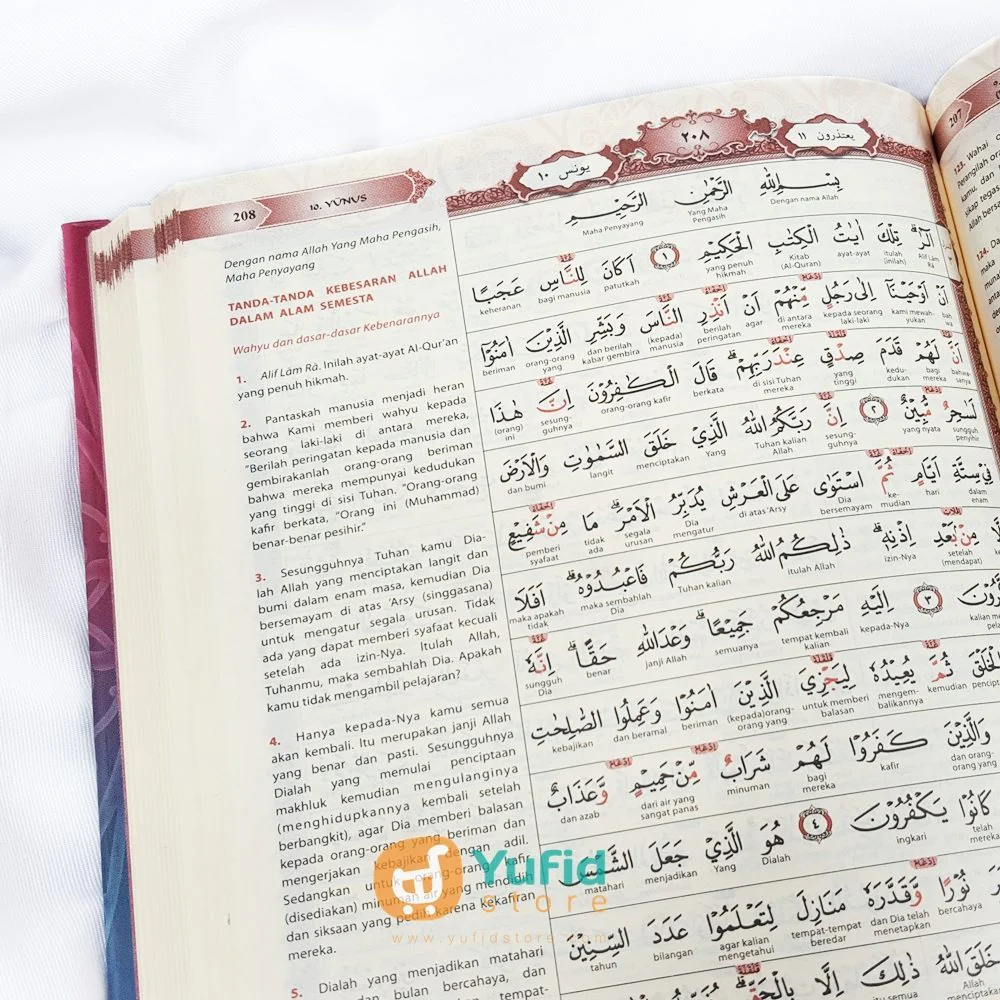 208
10. YŪNUS
Dengan nama Allah Yang Maha Pengasih,
Maha Penyayang
TANDA-TANDA KEBESARAN ALLAH
DALAM ALAM SEMESTA
Wahyu dan dasar-dasar Kebenarannya
1. Alif Lām Rā. Inilah ayat-ayat Al-Qur'an
yang penuh hikmah.
2. Pantaskah manusia menjadi heran
bahwa Kami memberi wahyu kepada
seorang laki-laki di antara mereka,
"Berilah peringatan kepada manusia dan
gembirakanlah orang-orang beriman
bahwa mereka mempunyai kedudukan
yang tinggi di sisi Tuhan. "Orang-orang
kafir berkata, "Orang ini (Muhammad)
benar-benar pesihir."
3. Sesungguhnya Tuhan kamu Dia-
lah Allah yang menciptakan langit dan
bumi dalam enam masa, kemudian Dia
bersemayam di atas 'Arsy (singgasana)
untuk mengatur segala urusan. Tidak
ada yang dapat memberi syafaat kecuali
setelah ada izin-Nya. Itulah Allah,
Tuhanmu, maka sembahlah Dia. Apakah
kamu tidak mengambil pelajaran?
4. Hanya kepada-Nya kamu semua
akan kembali. Itu merupakan janji Allah
yang benar dan pasti. Sesungguhnya
Dialah yang memulai penciptaan
makhluk kemudian mengulanginya
(menghidupkannya kembali setelah
berbangkit), agar Dia memberi balasan
kepada orang-orang yang beriman dan
mengerjakan kebajikan dengan adil.
Sedangkan untuk orang-orang kafir
(disediakan) minuman air yang mendidih
dan siksaan yang pedih karena kekafiran
mereka.
5. Dialah yang menjadikan matahari
dan bulan bercahaya, dan
tempat-
يعتذرون ١١
٢٠٨
يونس ١٠
بِسْمِ اللهِ الرَّحْمٰنِ الرَّحِيْمِ
Dengan nama Allah Yang Maha Pengasih Maha Penyayang
الۤرٰ ۗ تِلْكَ اٰيٰتُ الْكِتٰبِ الْحَكِيْمِ ١ اَكَانَ لِلنَّاسِ عَجَبًا
Alif Lām Rā itulah (inilah) ayat-ayat Kitab (Al-Quran) yang penuh hikmah patutkah bagi manusia keheranan
اَنْ اَوْحَيْنَآ اِلٰى رَجُلٍ مِّنْهُمْ اَنْ اَنْذِرِ النَّاسَ وَبَشِّرِ الَّذِيْنَ اٰمَنُوْٓا
bahwa kami mewahyukan kepada seorang laki-laki di antara mereka agar berilah peringatan (kepada) manusia dan berilah kabar gembira orang-orang yang beriman
اَنَّ لَهُمْ قَدَمَ صِدْقٍ عِنْدَ رَبِّهِمْ ۗ قَالَ الْكٰفِرُوْنَ اِنَّ هٰذَا
bahwasanya bagi mereka kedudukan yang tinggi di sisi Tuhan mereka berkata orang-orang kafir sesungguhnya (orang) ini
لَسٰحِرٌ مُّبِيْنٌ ٢ اِنَّ رَبَّكُمُ اللهُ الَّذِيْ خَلَقَ السَّمٰوٰتِ وَالْاَرْضَ
sungguh penyihir yang nyata sesungguhnya Tuhan kalian Allah Yang menciptakan langit dan bumi
فِيْ سِتَّةِ اَيَّامٍ ثُمَّ اسْتَوٰى عَلَى الْعَرْشِ يُدَبِّرُ الْاَمْرَ ۗ مَا مِنْ شَفِيْعٍ
dalam enam hari kemudian Dia bersemayam di atas 'Arsy Dia mengatur segala urusan tidak ada pemberi syafaat
مِنْۢ بَعْدِ اِذْنِهٖ ۗ ذٰلِكُمُ اللهُ رَبُّكُمْ فَاعْبُدُوْهُ ۗ اَفَلَا
setelah (mendapat) izin-Nya itulah Allah Tuhan kalian maka sembahlah Dia maka apakah tidak
٣ اِلَيْهِ مَرْجِعُكُمْ جَمِيْعًا ۗ وَعْدَ اللهِ حَقًّا ۗ اِنَّهٗ
kepada-Nya tempat kembali kalian semuanya janji Allah benar sungguh Dia
الْخَلْقَ ثُمَّ يُعِيْدُهٗ لِيَجْزِيَ الَّذِيْنَ اٰمَنُوْا وَعَمِلُوا الصّٰلِحٰتِ
kemudian mengembalikannya untuk memberi balasan (kepada)orang-orang yang beriman dan beramal kebajikan
وَالَّذِيْنَ كَفَرُوْا لَهُمْ شَرَابٌ مِّنْ حَمِيْمٍ وَّعَذَابٌ
dan orang-orang yang kafir bagi mereka minuman dari air yang sangat panas dan azab
كَانُوْا يَكْفُرُوْنَ ٤ هُوَ الَّذِيْ جَعَلَ الشَّمْسَ
telah mereka ingkari Dialah Yang menjadikan matahari
نُوْرًا وَّقَدَّرَهٗ مَنَازِلَ لِتَعْلَمُوْا عَدَدَ السِّنِيْنَ
bercahaya dan Dia telah menetapkan tempat-tempat beredar agar kalian mengetahui bilangan tahun
خَلَقَ اللهُ ذٰلِكَ اِلَّا بِالْحَقِّ
Allah menciptakan
207
123. Wahai
124.
Yufid
store
www.yufidstore.com